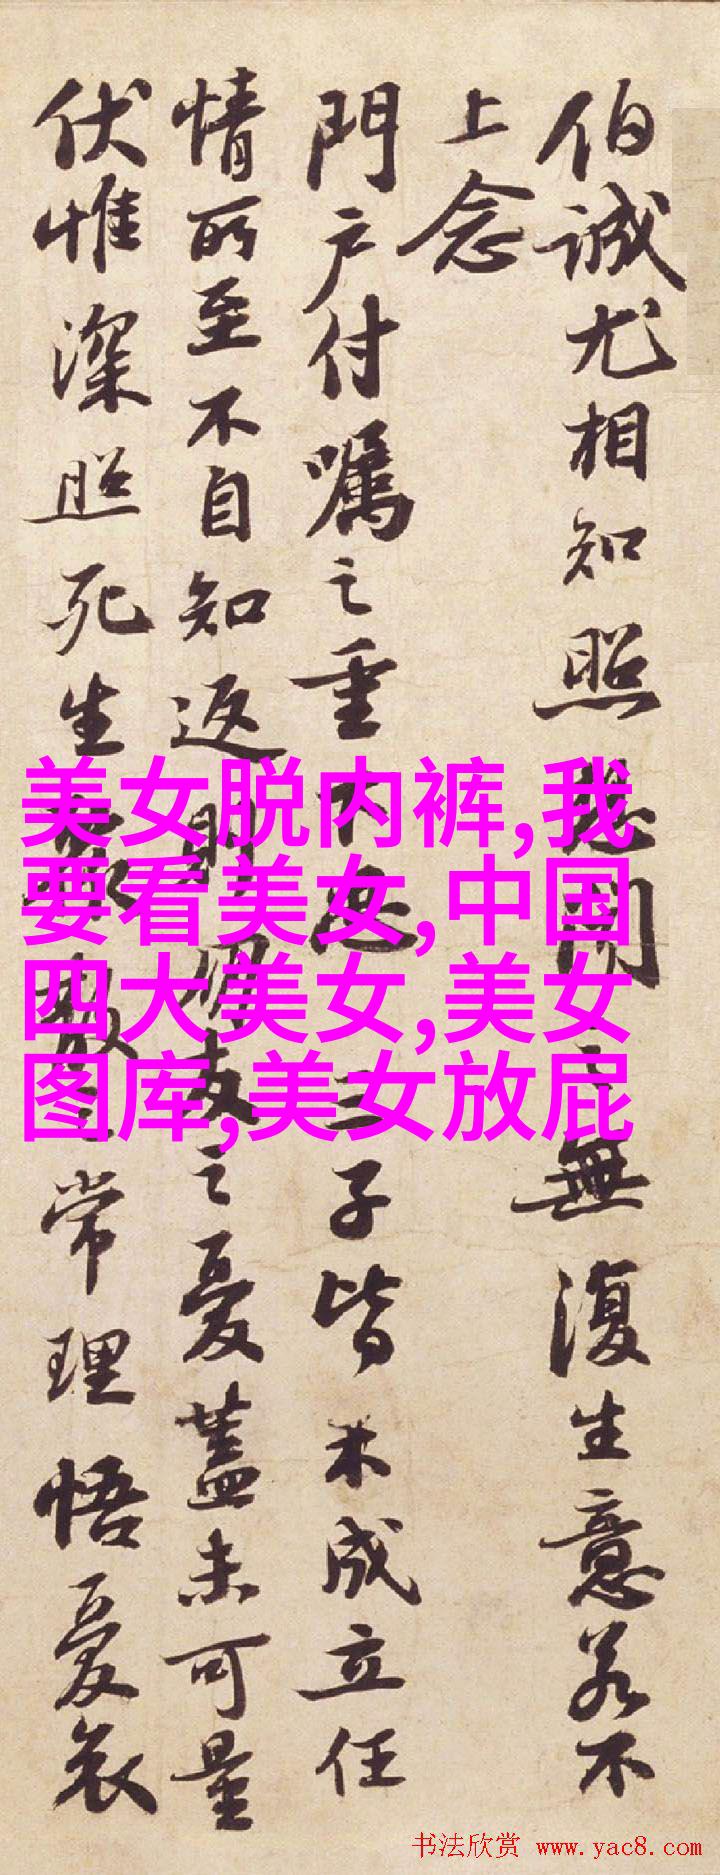 伯诚尤相知照想闻之無復生意若不
上念
門户付嘱之重下思三子皆未成立任
情所至不自知返則朋友之憂蓋未可量
伏惟深照死生聚散之常理悟憂哀
美女脱内裤,我
要看美女,中国
四大美女,美女
图库,美女放屁
书法欣赏 www.yac8.com